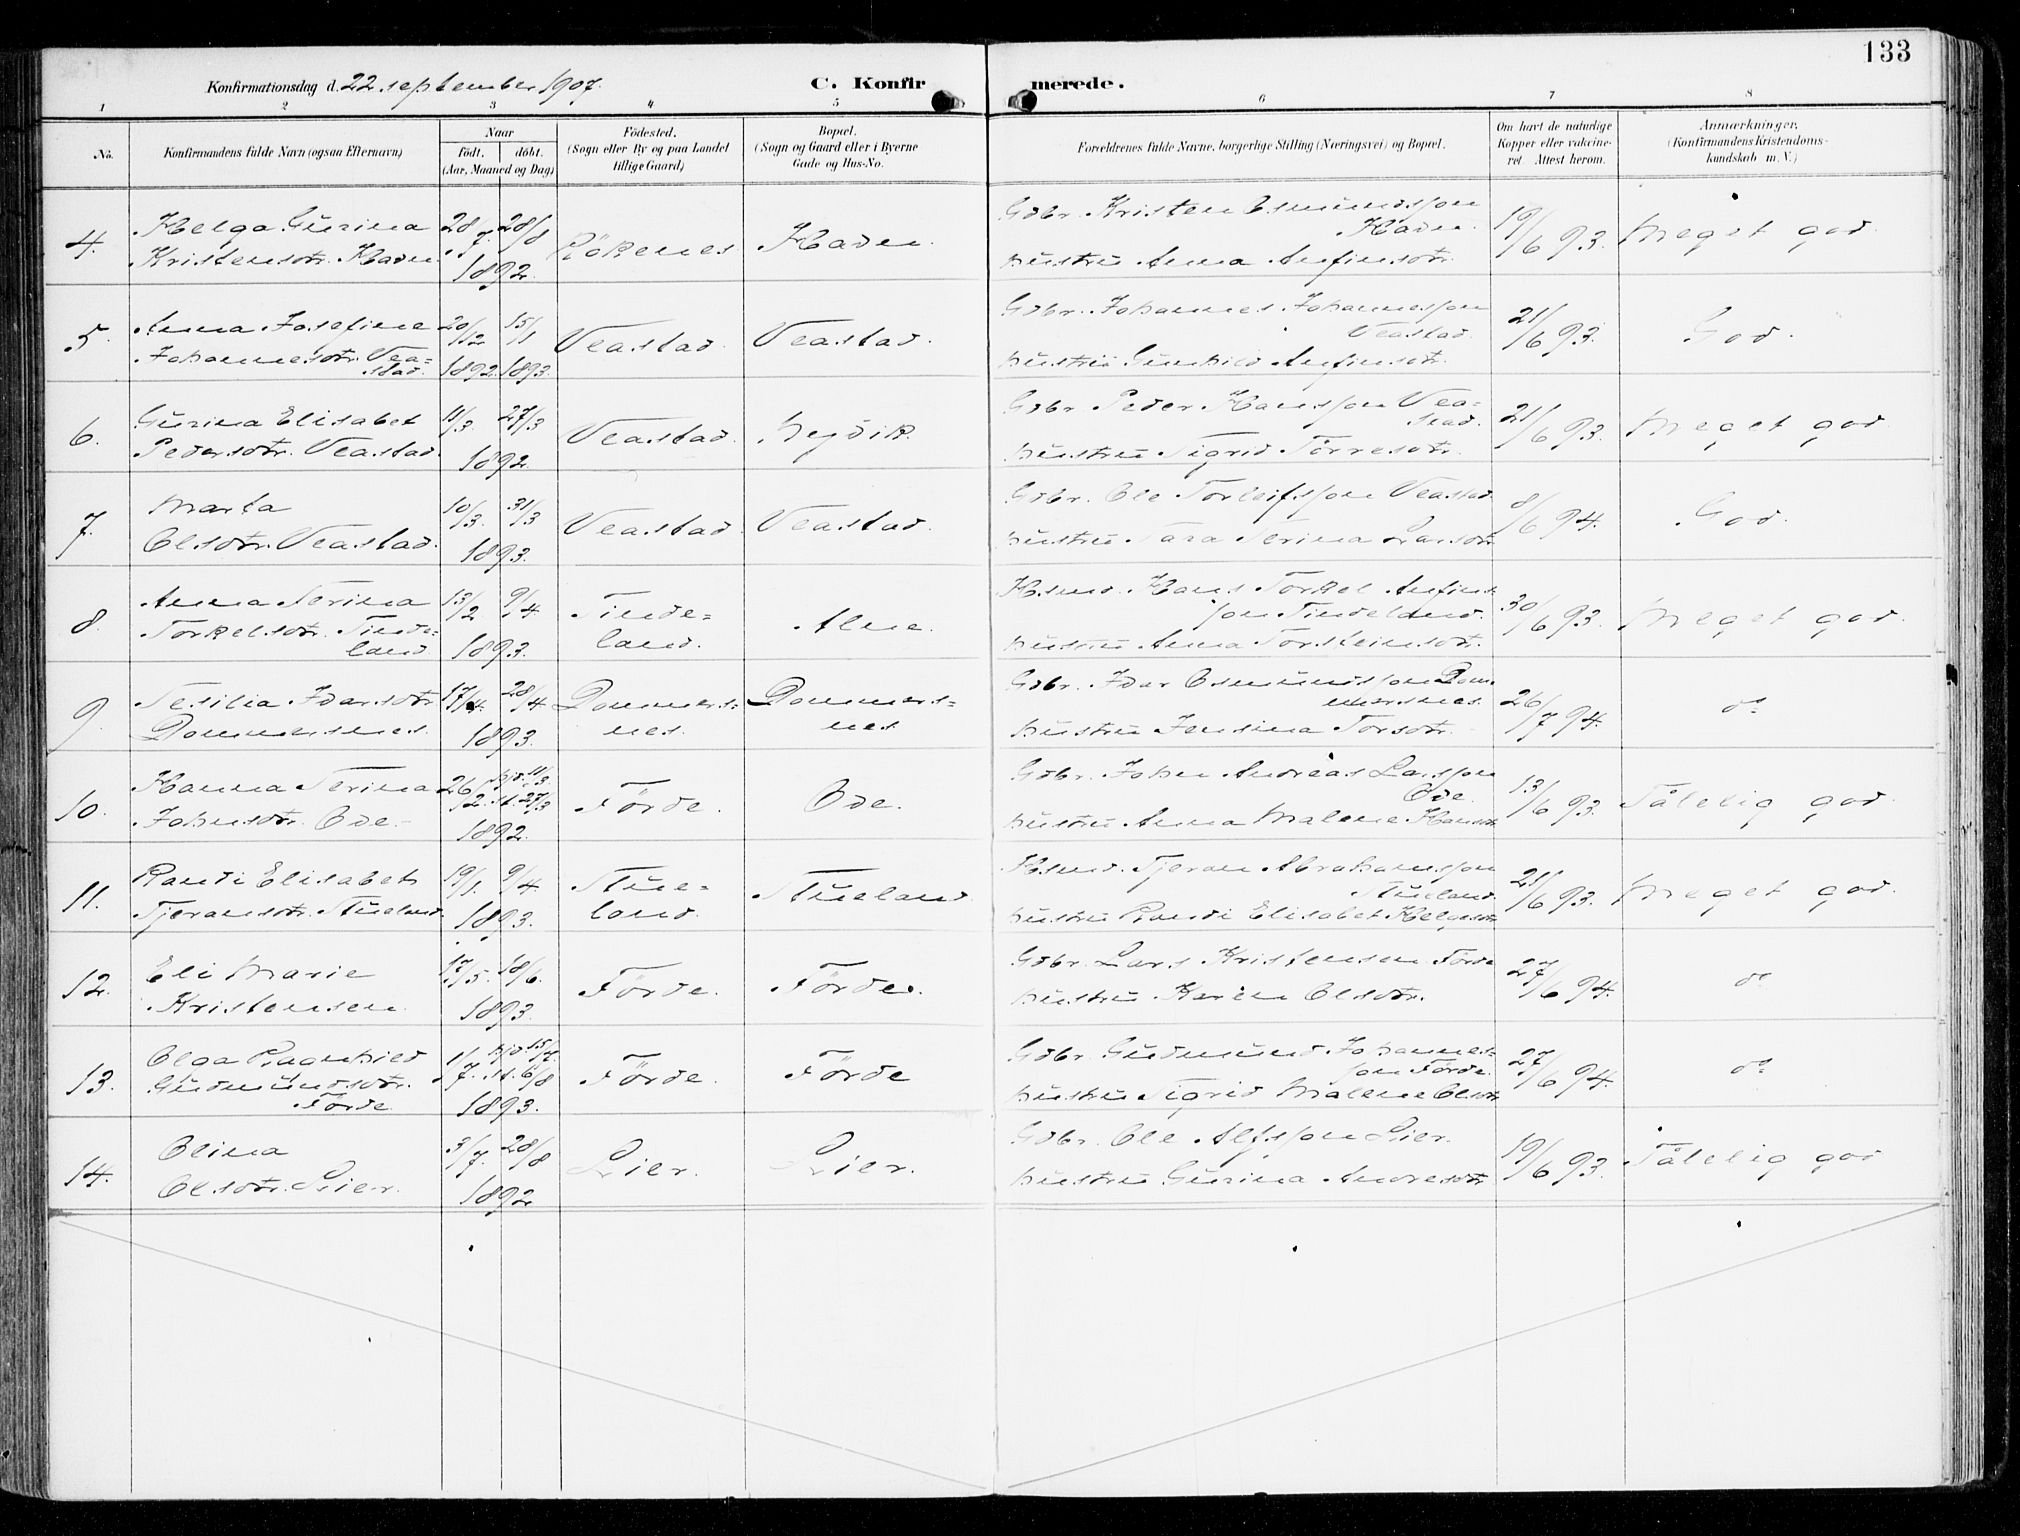 133
Konfirmationsdag d. 22. september 1907.
C. Konfir
merede.
1 2 3 4 5 6 7 8
No.
Konfirmandens fulde Navn (ogsaa Efternavn)
Naar
födt. döbt.
(Aar, Maaned og Dag)
Födested.
(Sogn eller By og paa Landet
tillige Gaard)
Bopæl.
(Sogn og Gaard eller i Byerne
Gade og Hus-No.
Forældrenes fulde Navne, borgerlige Stilling (Næringsvei) og Bopæl.
Om havt de naturlige
Kopper eller vakcine-
ret. Attest herom.
Anmærkninger.
(Konfirmandens Kristendoms-
kundskab m. V.)
4. Helga Gurina
Kristensdtr. Haden
28/7. 28/8
1892.
Rökenes. Haden.
Gdbr. Kristen Osmundsson
Haden.
hustru Anna Anfinsdtr.
19/6 93. Meget god.
5. Anna Josefine
Johannesdtr. Vea=
stad.
20/12 15/1
1892. 1893.
Veastad. Veastad.
Gdbr. Johannes Johannesson
Veastad.
hustru Gunhild Anfinsdtr.
21/6 93. God.
6. Gurina Elisabet
Pedersdtr. Veastad.
11/3. 27/3
1892.
Veastad.
Gdbr. Peder Hansson Vea=
stad.
hustru Sigrid Törresdtr.
21/6 93. Meget god.
7. Marta
Olsdtr. Veastad.
10/3. 31/3
1893.
Veastad. Veastad.
Gdbr. Ole Torleifsson Veastad.
hustru Sara Serina Larsdtr.
8/6 94. God.
8. Anna Serina
Torkelsdtr. Tinde=
land.
13/2 9/4
1893.
Tinde=
land.
Alne.
Hsmd. Hans Torkel Anfins
son Tindeland.
hustru Anna Torsteinsdtr.
30/6 93. Meget god.
9. Sesilia Idarsdtr
Dommersnes.
17/4. 28/4
1893.
Dommers=
nes.
Dommers=
nes
Gdbr. Idar Osmundsson Dom=
mersnes.
hustru Jensina Torsdtr.
26/7 94. do
10. Hanna Serina
Johnsdtr. Ode.
26/2. hjd. 11/3 st. 27/3
1892.
Förde. Ode.
Gdbr. John Andreas Larsson
Ode.
hustru Anna Malene Hansdtr.
13/6 93. Tålelig god.
11. Randi Elisabet
Tjeransdtr. Stueland.
19/1. 9/4
1893.
Stue=
land.
Stueland.
Hsmd. Tjeran Abrahamsson
Stueland.
hustru Randi Elisabet Helgesdtr.
21/6 93. Meget god.
12. Eli Marie
Kristensen.
17/5. 18/6.
1893.
Förde. Förde.
Gdbr. Lars Kristensen Förde
hustru Karen Olsdtr.
27/6 94. do
13. Olga Ragnhild
Gudmundsdtr.
Förde
1/7. hjd. 15/7. st. 6/8
1893.
Förde. Förde
Gdbr. Gudmund Johannes=
son Förde.
hustru Sigrid Malene Olsdtr.
27/6 94. do
14. Olina
Olsdtr. Lier.
3/7. 28/8
1892
Lier. Lier.
Gdbr. Ole Alfsson Lier.
hustru Gurina Andresdtr.
19/6 93. Tålelig god